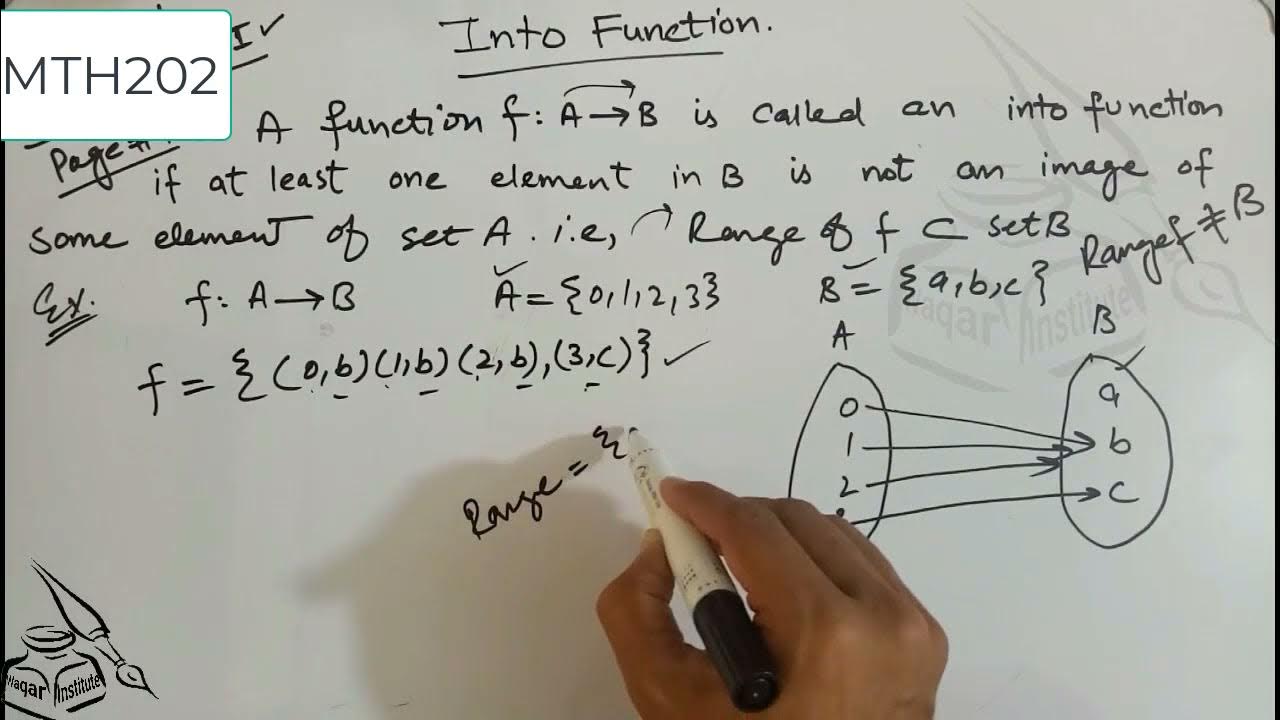 I✓
Into Function.
MTH202
A function f: A→B is called an into function
Page #
if at least one element in B is not an image of
some element of set A. i.e, Range of f ⊂ set B
Range f ≠ B
Ex. f: A→B A = {0,1,2,3} B = {a,b,c}
f = {(0,b)(1,b)(2,b),(3,c)} ✓
A B
0 a
1 b
2 c
Range = {
Waqar Institute
Waqar Institute